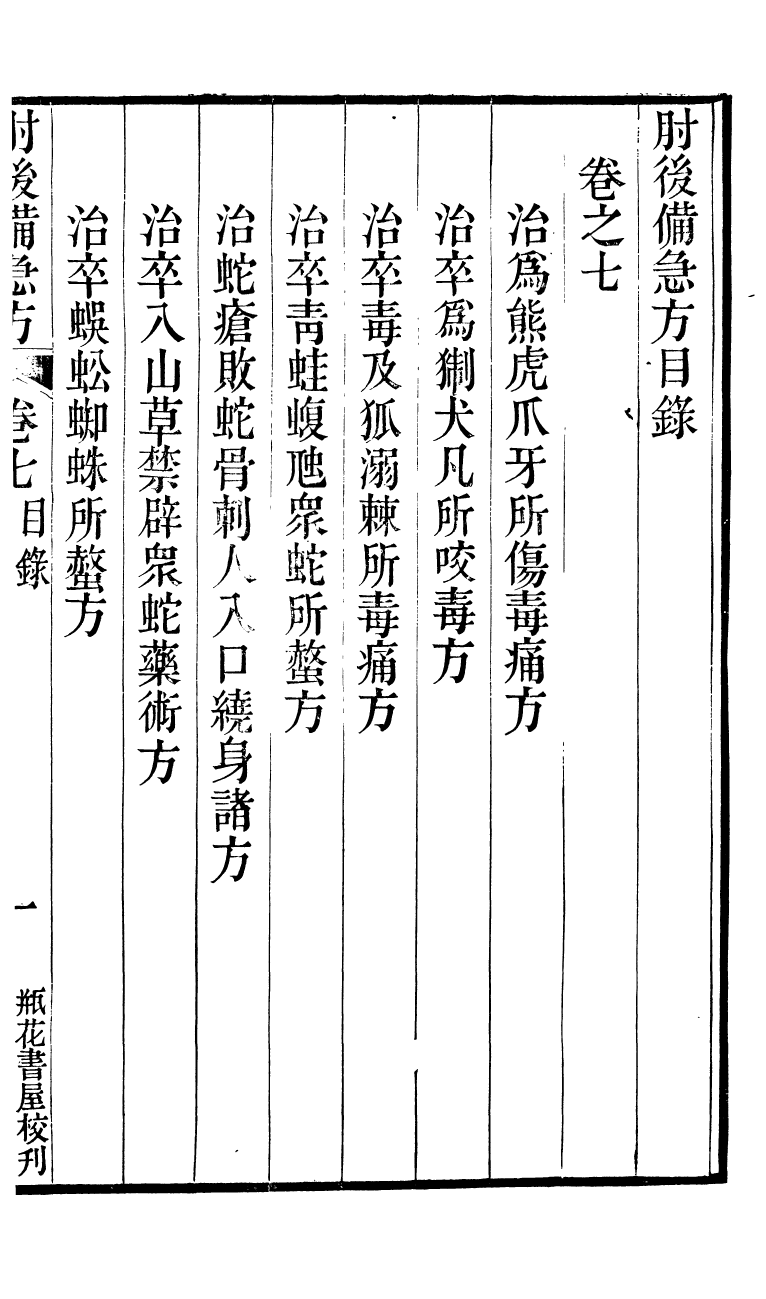 肘後備急方目錄
卷之七
治爲熊虎爪牙所傷毒痛方
治卒爲猘犬凡所咬毒方
治卒毒及狐溺棘所毒痛方
治卒青蛙蝮虺眾蛇所螫方
治蛇瘡敗蛇骨刺人入口繞身諸方
治卒入山草禁辟眾蛇藥術方
治卒蜈蚣蜘蛛所螫方
肘後備急方 卷七目錄 一 瓶花書屋校刊